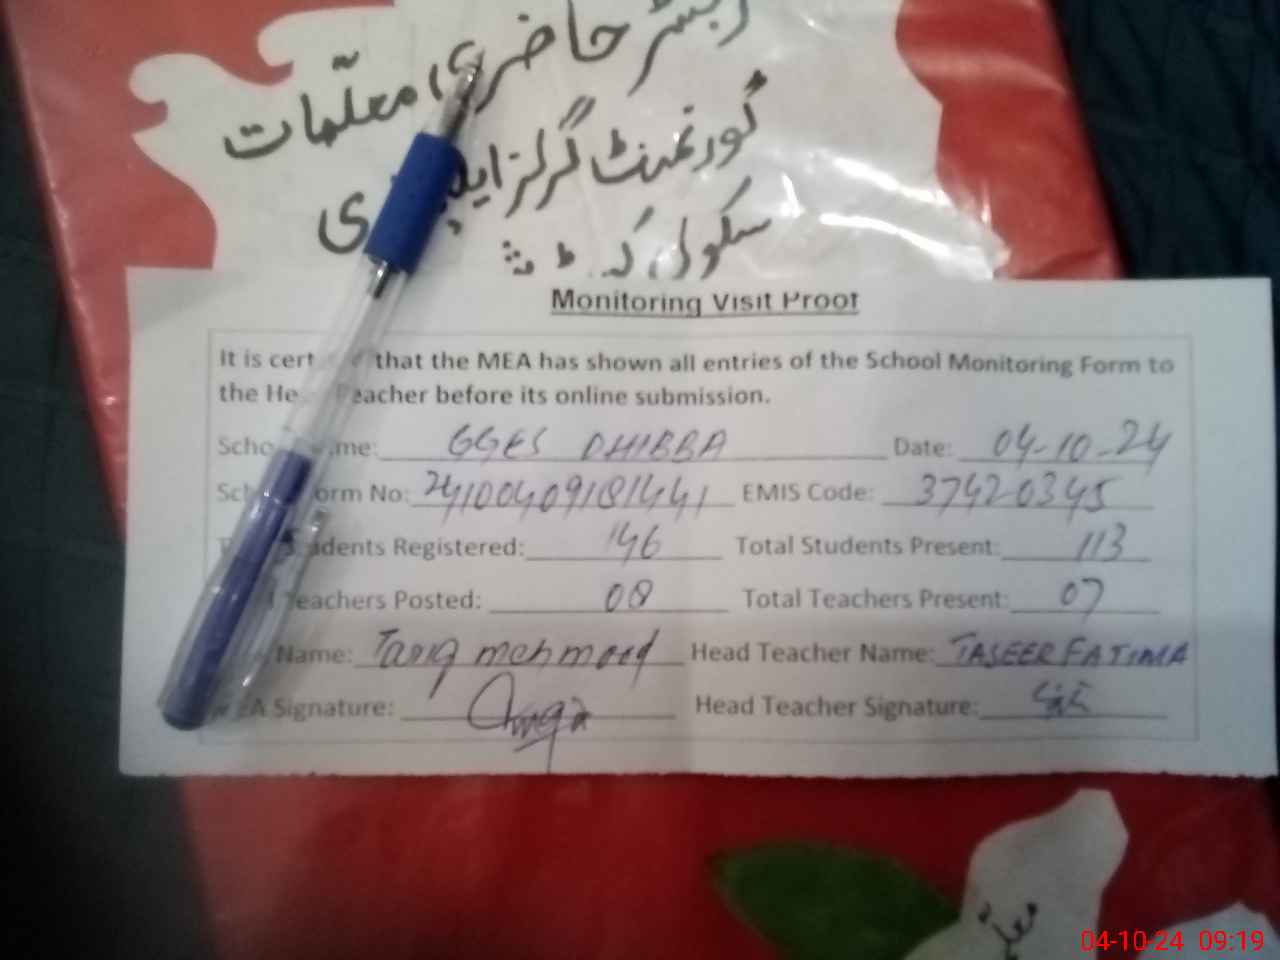 رجسٹر حاضری معلّمات
گورنمنٹ گرلز
سکول
Monitoring Visit Proof
It is that the MEA has shown all entries of the School Monitoring Form to
the Teacher before its online submission.
GGES DHIBBA Date: 04-10-24
Form No: 24100409181441 EMIS Code: 37420345
Students Registered: 146 Total Students Present: 113
Teachers Posted: 08 Total Teachers Present: 07
Name: Tariq mehmood Head Teacher Name: TASEER FATIMA
Signature: Head Teacher Signature:
04-10-24 09:19